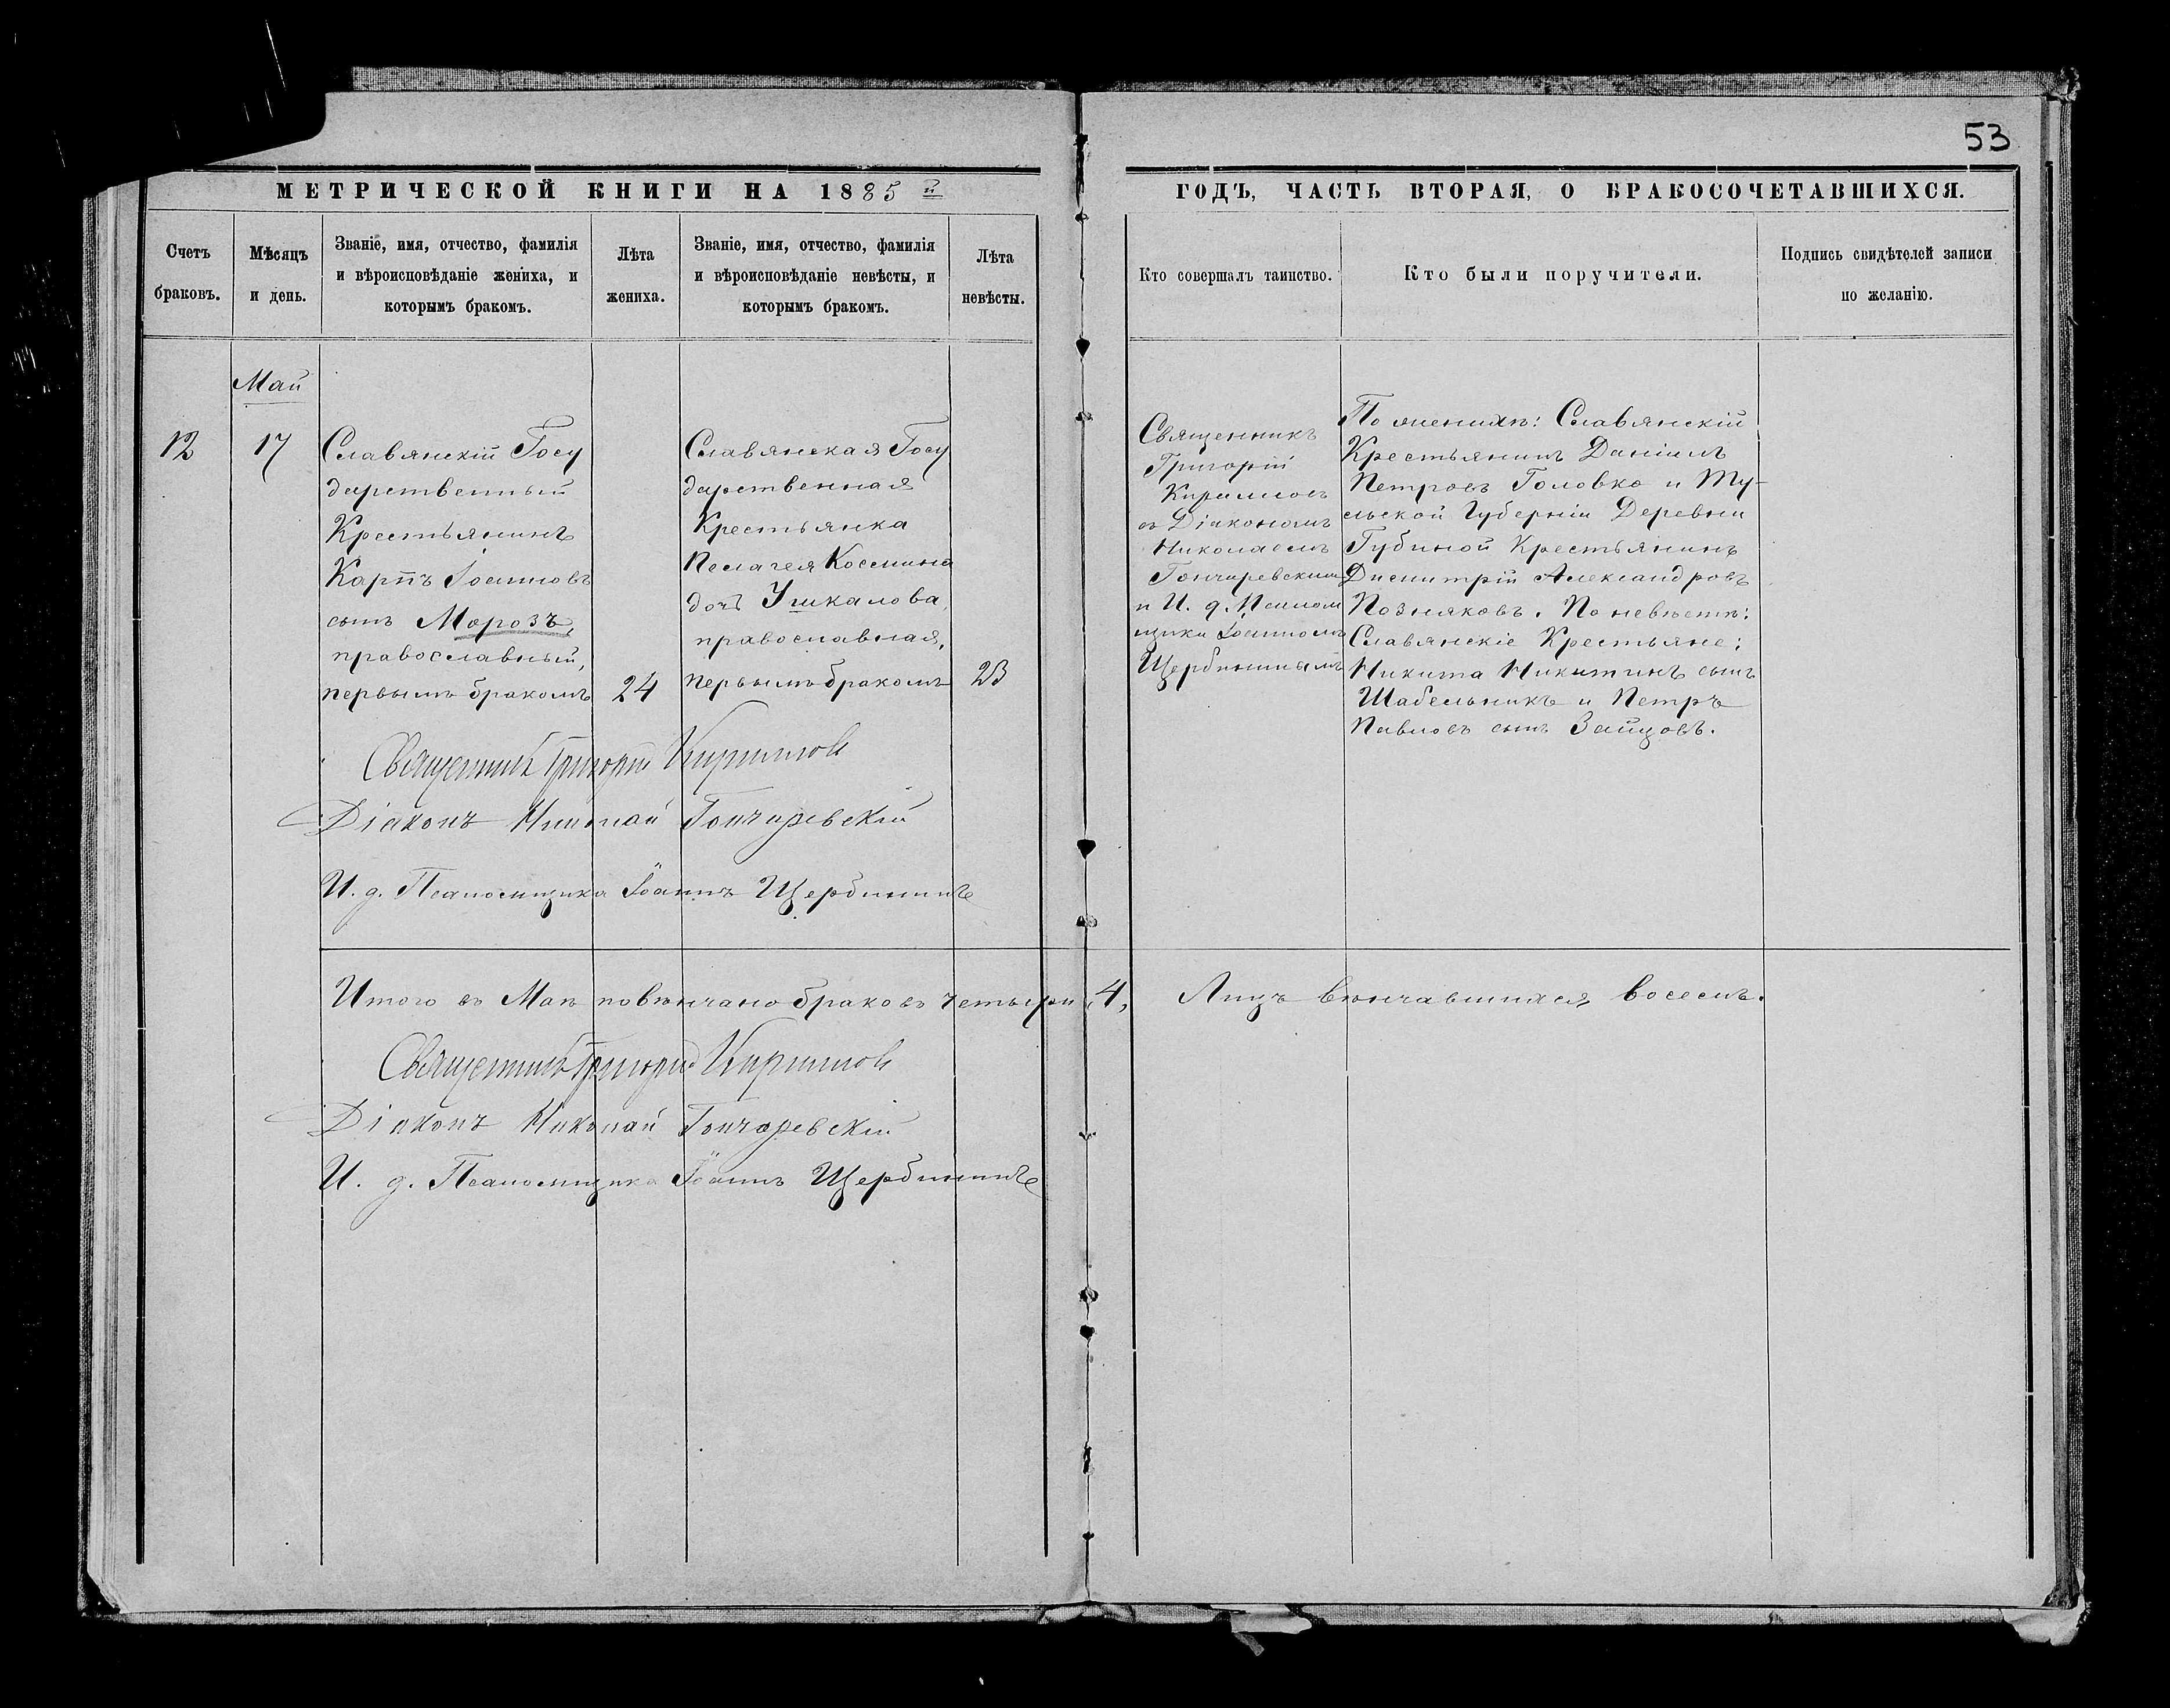 53
МЕТРИЧЕСКОЙ КНИГИ НА 1885 й
ГОДЪ, ЧАСТЬ ВТОРАЯ, О БРАКОСОЧЕТАВШИХСЯ.
Счетъ
браковъ.
Мѣсяцъ
и день.
Званіе, имя, отчество, фамилія
и вѣроисповѣданіе жениха, и
которымъ бракомъ.
Лѣта
жениха.
Званіе, имя, отчество, фамилія
и вѣроисповѣданіе невѣсты, и
которымъ бракомъ.
Лѣта
невѣсты.
Кто совершалъ таинство.
Кто были поручители.
Подпись свидѣтелей записи
по желанію.
Май
12
17
Славянскій Госу
дарственный
Крестьянинъ
Карпъ Іоанновъ
сынъ Морозъ,
православный,
первымъ бракомъ
24
Славянская Госу
дарственная
Крестьянка
Пелагея Космина
дочь Ушкалова,
православная,
первымъ бракомъ
23
Священникъ
Григорій
Кирилловъ
съ Діакономъ
Николаемъ
Гончаревским
и И. д. Псалом
щика Іоанномъ
Щербининымъ
По женихѣ: Славянскій
Крестьянинъ Даніилъ
Петровъ Головко и Ту-
льской Губерніи Деревни
Губиной Крестьянинъ
Димитрій Александровъ
Позняковъ. По невѣстѣ:
Славянскіе Крестьяне:
Никита Никитинъ сынъ
Шабельникъ и Петръ
Павловъ сынъ Зайцовъ.
Священникъ Григорій Кирилловъ
Діаконъ Николай Гончаревскій
И. д. Псаломщика Іоаннъ Щербининъ
Итого въ Маѣ повѣнчано браковъ четыре 4,
Лицъ вѣнчавшихся восемь.
Священникъ Григорій Кирилловъ
Діаконъ Николай Гончаревскій
И. д. Псаломщика Іоаннъ Щербининъ